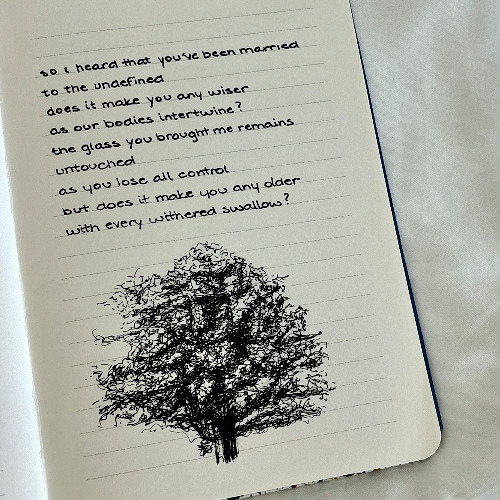 so i heard that you've been married
to the undefined
does it make you any wiser
as our bodies intertwine?
the glass you brought me remains
untouched
as you lose all control
but does it make you any older
with every withered swallow?